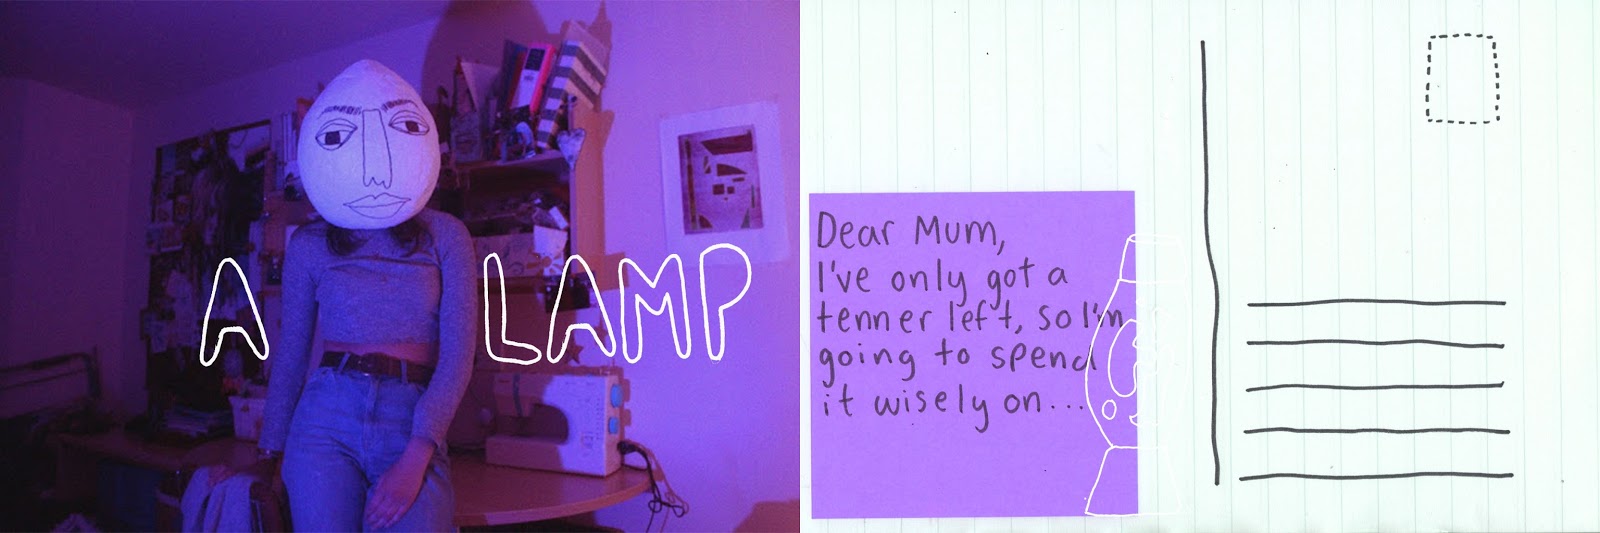 A LAMP
Dear Mum,
I've only got a
tenner left, so I'm
going to spend
it wisely on...